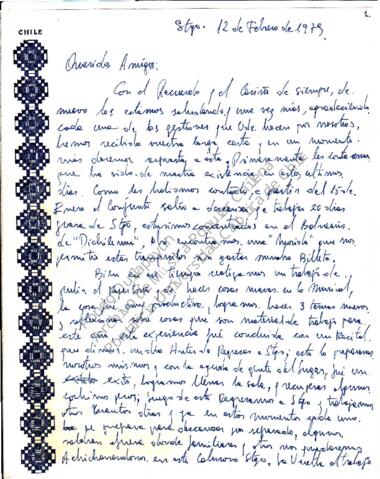 1.
CHILE
Stgo. 12 de Febrero de 1979
Queridos Amigos:
Con el Recuerdo y el Cariño de siempre, de
nuevo los estamos saludando, y una vez más, agradeciendo
cada una de las gestiones que Uds. hacen por nosotros,
hemos recibido vuestra larga carta y en un momento
más daremos respuesta a esta, Primeramente les
que ha sido de nuestra existencia en estos últimos
días. Como les habíamos contado a partir del 15 de
Enero el Conjunto salió a descansar y trabajar 20 días
fuera de Stgo, estuvimos en el Balneario
de "Pichilemu", allí encontramos una "movida" que nos
permitía estar tranquilos sin gastar mucho Billete.
Bien en ese tiempo realizamos un trabajo de
pulir el Repertorio y de hacer cosas nuevas en lo musical,
la cosa fue muy productiva, logramos hacer 3 temas nuevos
y reflexionar sobre cosas que son material de trabajo para
este año esta experiencia fué concluida con un Recital
que dimos, un día Antes de Regresar a Stgo; este lo preparamos
nosotros mismos y con la ayuda de gente del lugar, fué un
éxito, logramos llenar la sala, y recuperar algunos
pesos, luego de esto Regresamos a Stgo y trabajamos
otros cuantos días y ya en estos momentos cada uno
se prepara para descansar por separado, algunos
saldrán afuera donde familiares y otros nos quedaremos
Achicharrandonos en este Caluroso Stgo, la Vuelta al trabajo